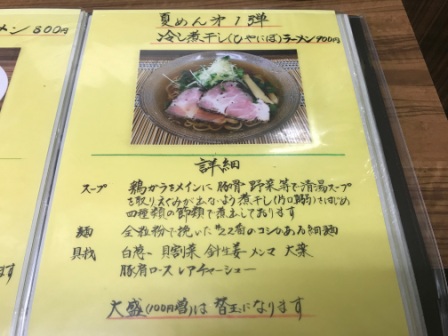 メン 800円
夏めん 第1弾
冷し煮干し(ひやにぼ)ラーメン 900円
詳細
スープ 鶏がらをメインに 豚骨 野菜等で清湯スープ
を取りえぐみが出ないよう煮干し(片口鰯)をはじめ
四種類の節類で煮出しております
麺 全粒粉で挽いた#22番のコシがある細麺
具材 白葱 貝割菜 針生姜 メンマ 大葉
豚肩ロースレアチャーシュー
ます
大盛(100円増)は 替玉になります
す